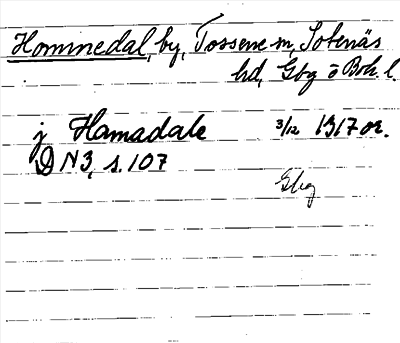 Hommedal, by, Tossene sn, Sotenäs
hd, Gbg o Boh. l.
j Hamadale 3/12 1317 or.
DN3, s. 107
Gbg